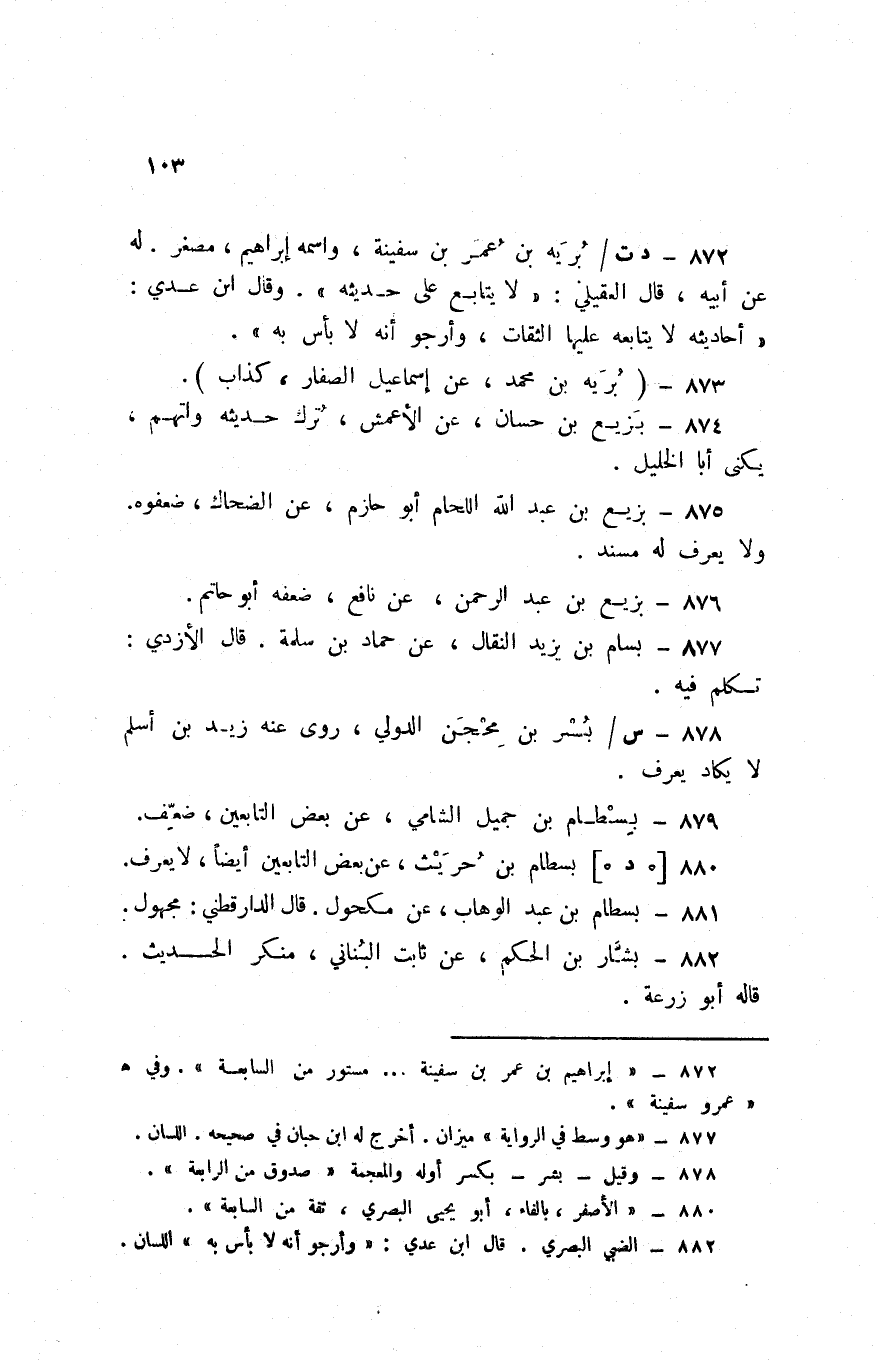 ١٠٣
٨٧٢ – د ت / بُرَيه بن عُمَر بن سفينة ، واسمه إبراهيم ، مصغر . له
عن أبيه ، قال العقيلي : « لا يتابع على حديثه » . وقال ابن عدي :
« أحاديثه لا يتابعه عليها الثقات ، وأرجو أنه لا بأس به » .
٨٧٣ – ( بُرَيه بن محمد ، عن إسماعيل الصفار ، كذاب ) .
٨٧٤ – بَزيع بن حسان ، عن الأعمش ، تُرك حديثه واتهم ،
يكنى أبا الخليل .
٨٧٥ – بزيع بن عبد الله اللحام أبو حازم ، عن الضحاك ، ضعفوه.
ولا يعرف له مسند .
٨٧٦ – بزيع بن عبد الرحمن ، عن نافع ، ضعفه أبو حاتم .
٨٧٧ – بسام بن يزيد النقال ، عن حماد بن سلمة . قال الأزدي :
تكلم فيه .
٨٧٨ – س / بُسْر بن مِحْجَن الدولي ، روى عنه زيد بن أسلم
لا يكاد يعرف .
٨٧٩ – بِسْطام بن جميل الشامي ، عن بعض التابعين ، ضعِّيف.
٨٨٠ [ ه د ه ] بسطام بن حُرَيْث ، عن بعض التابعين أيضاً ، لا يعرف.
٨٨١ – بسطام بن عبد الوهاب ، عن مكحول . قال الدارقطني : مجهول .
٨٨٢ – بشَّار بن الحكم ، عن ثابت البُناني ، منكر الحديث .
قاله أبو زرعة .
٨٧٢ – « إبراهيم بن عمر بن سفينة ... مستور من السابعة » . وفي ه
« عمرو سفينة » .
٨٧٧ – «هو وسط في الرواية » ميزان . أخرج له ابن حبان في صحيحه . اللسان .
٨٧٨ – وقيل – بشر – بكسر أوله والمعجمة « صدوق من الرابعة » .
٨٨٠ – « الأصفر ، بالفاء ، أبو يحيى البصري ، ثقة من السابعة » .
٨٨٢ – الضبي البصري . قال ابن عدي : « وأرجو أنه لا بأس به » اللسان .